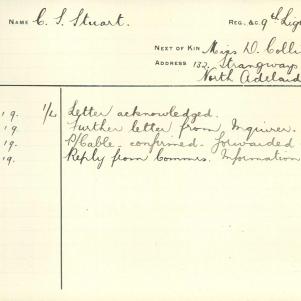 NAME C. S. Stuart. REG. &C. 9th Lig
NEXT OF KIN Miss D. Colli
ADDRESS 132, Strangways
North Adelaid
19. 1/L Letter acknowledged.
19. Further letter from Inquirer.
19. P/Cable confirmed - forwarded
19. Reply from Commrs. Information